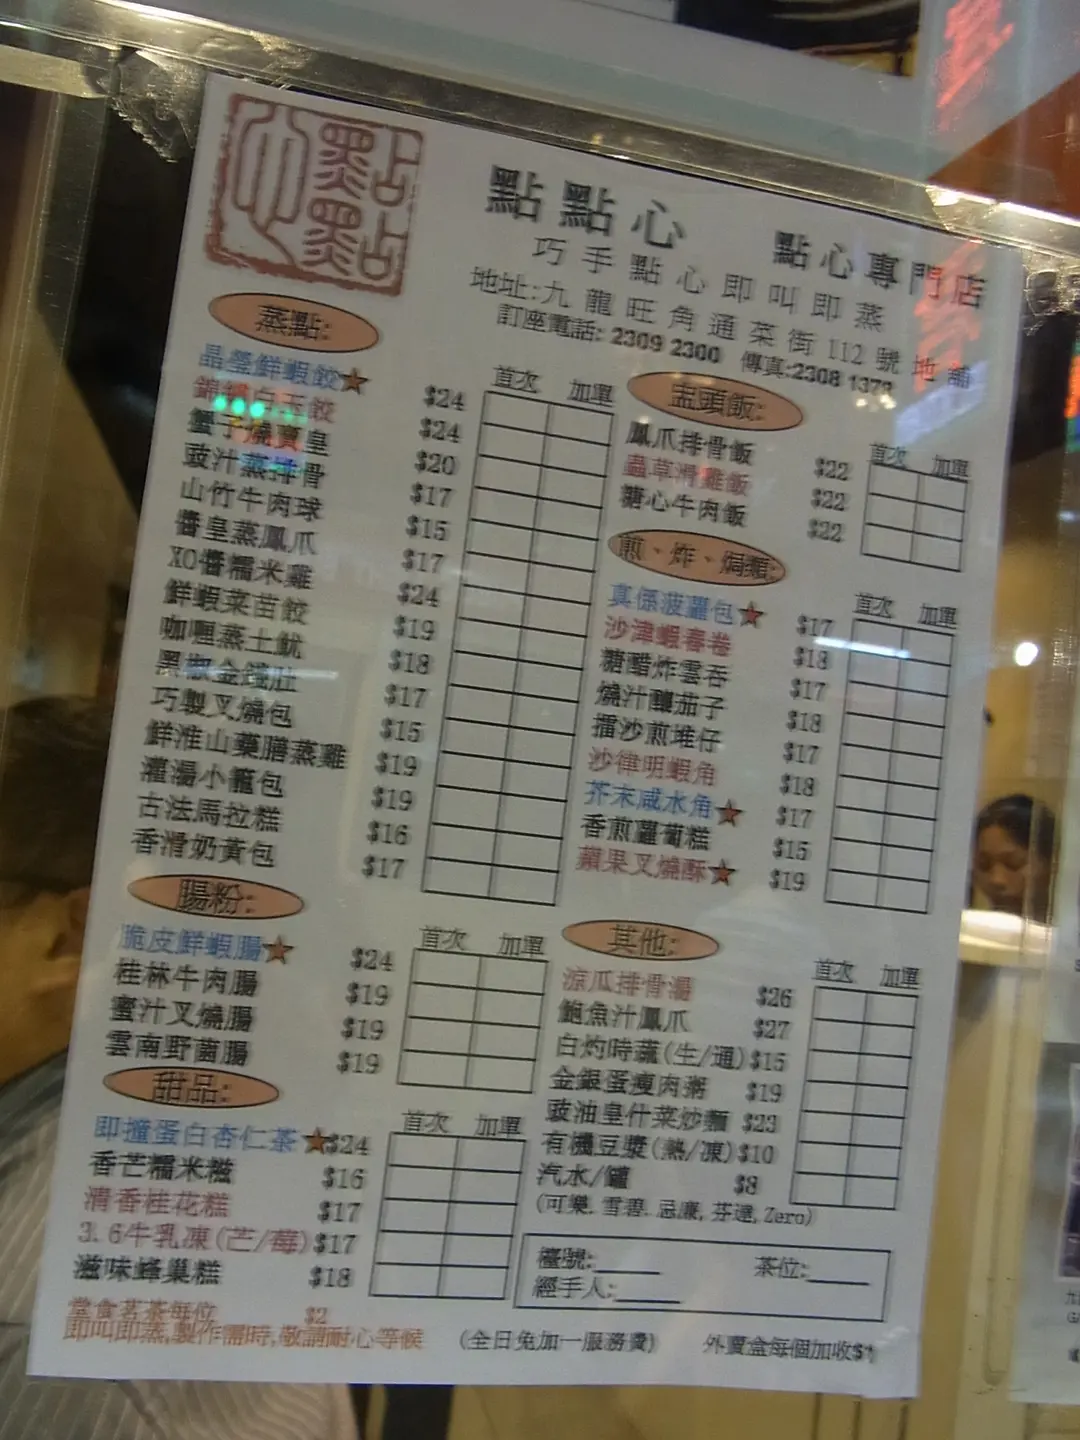 點點心
點點心 點心專門店
巧手點心即叫即蒸
地址:九龍旺角通菜街112號地舖
訂座電話: 2309 2300 傳真:2308 1373
蒸點:
首次 加單
晶瑩鮮蝦餃★ $24
錦繡白玉餃 $24
蟹子燒賣皇 $20
豉汁蒸排骨 $17
山竹牛肉球 $15
醬皇蒸鳳爪 $17
XO醬糯米雞 $24
鮮蝦菜苗餃 $19
咖喱蒸土魷 $18
黑椒金錢肚 $17
巧製叉燒包 $15
鮮淮山藥膳蒸雞 $19
灌湯小籠包 $19
古法馬拉糕 $16
香滑奶黃包 $17
腸粉:
首次 加單
脆皮鮮蝦腸★ $24
桂林牛肉腸 $19
蜜汁叉燒腸 $19
雲南野菌腸 $19
甜品:
首次 加單
即撞蛋白杏仁茶★$24
香芒糯米糍 $16
清香桂花糕 $17
3.6牛乳凍(芒/莓)$17
滋味蜂巢糕 $18
盅頭飯:
首次 加單
鳳爪排骨飯 $22
蟲草滑雞飯 $22
糖心牛肉飯 $22
煎、炸、焗類:
首次 加單
真係菠蘿包★ $17
沙津蝦春卷 $18
糖醋炸雲吞 $17
燒汁釀茄子 $18
擂沙煎堆仔 $17
沙律明蝦角 $18
芥末咸水角★ $17
香煎蘿蔔糕 $15
蘋果叉燒酥★ $19
其他:
首次 加單
涼瓜排骨湯 $26
鮑魚汁鳳爪 $27
白灼時蔬(生/通)$15
金銀蛋瘦肉粥 $19
豉油皇什菜炒麵 $23
有機豆漿(熱/凍)$10
汽水/罐 $8
(可樂.雪碧.忌廉,芬達,Zero)
檯號:_____ 茶位:_____
經手人:_____
堂食茗茶每位 $2
即叫即蒸,製作需時,敬請耐心等候 (全日免加一服務費) 外賣盒每個加收$1